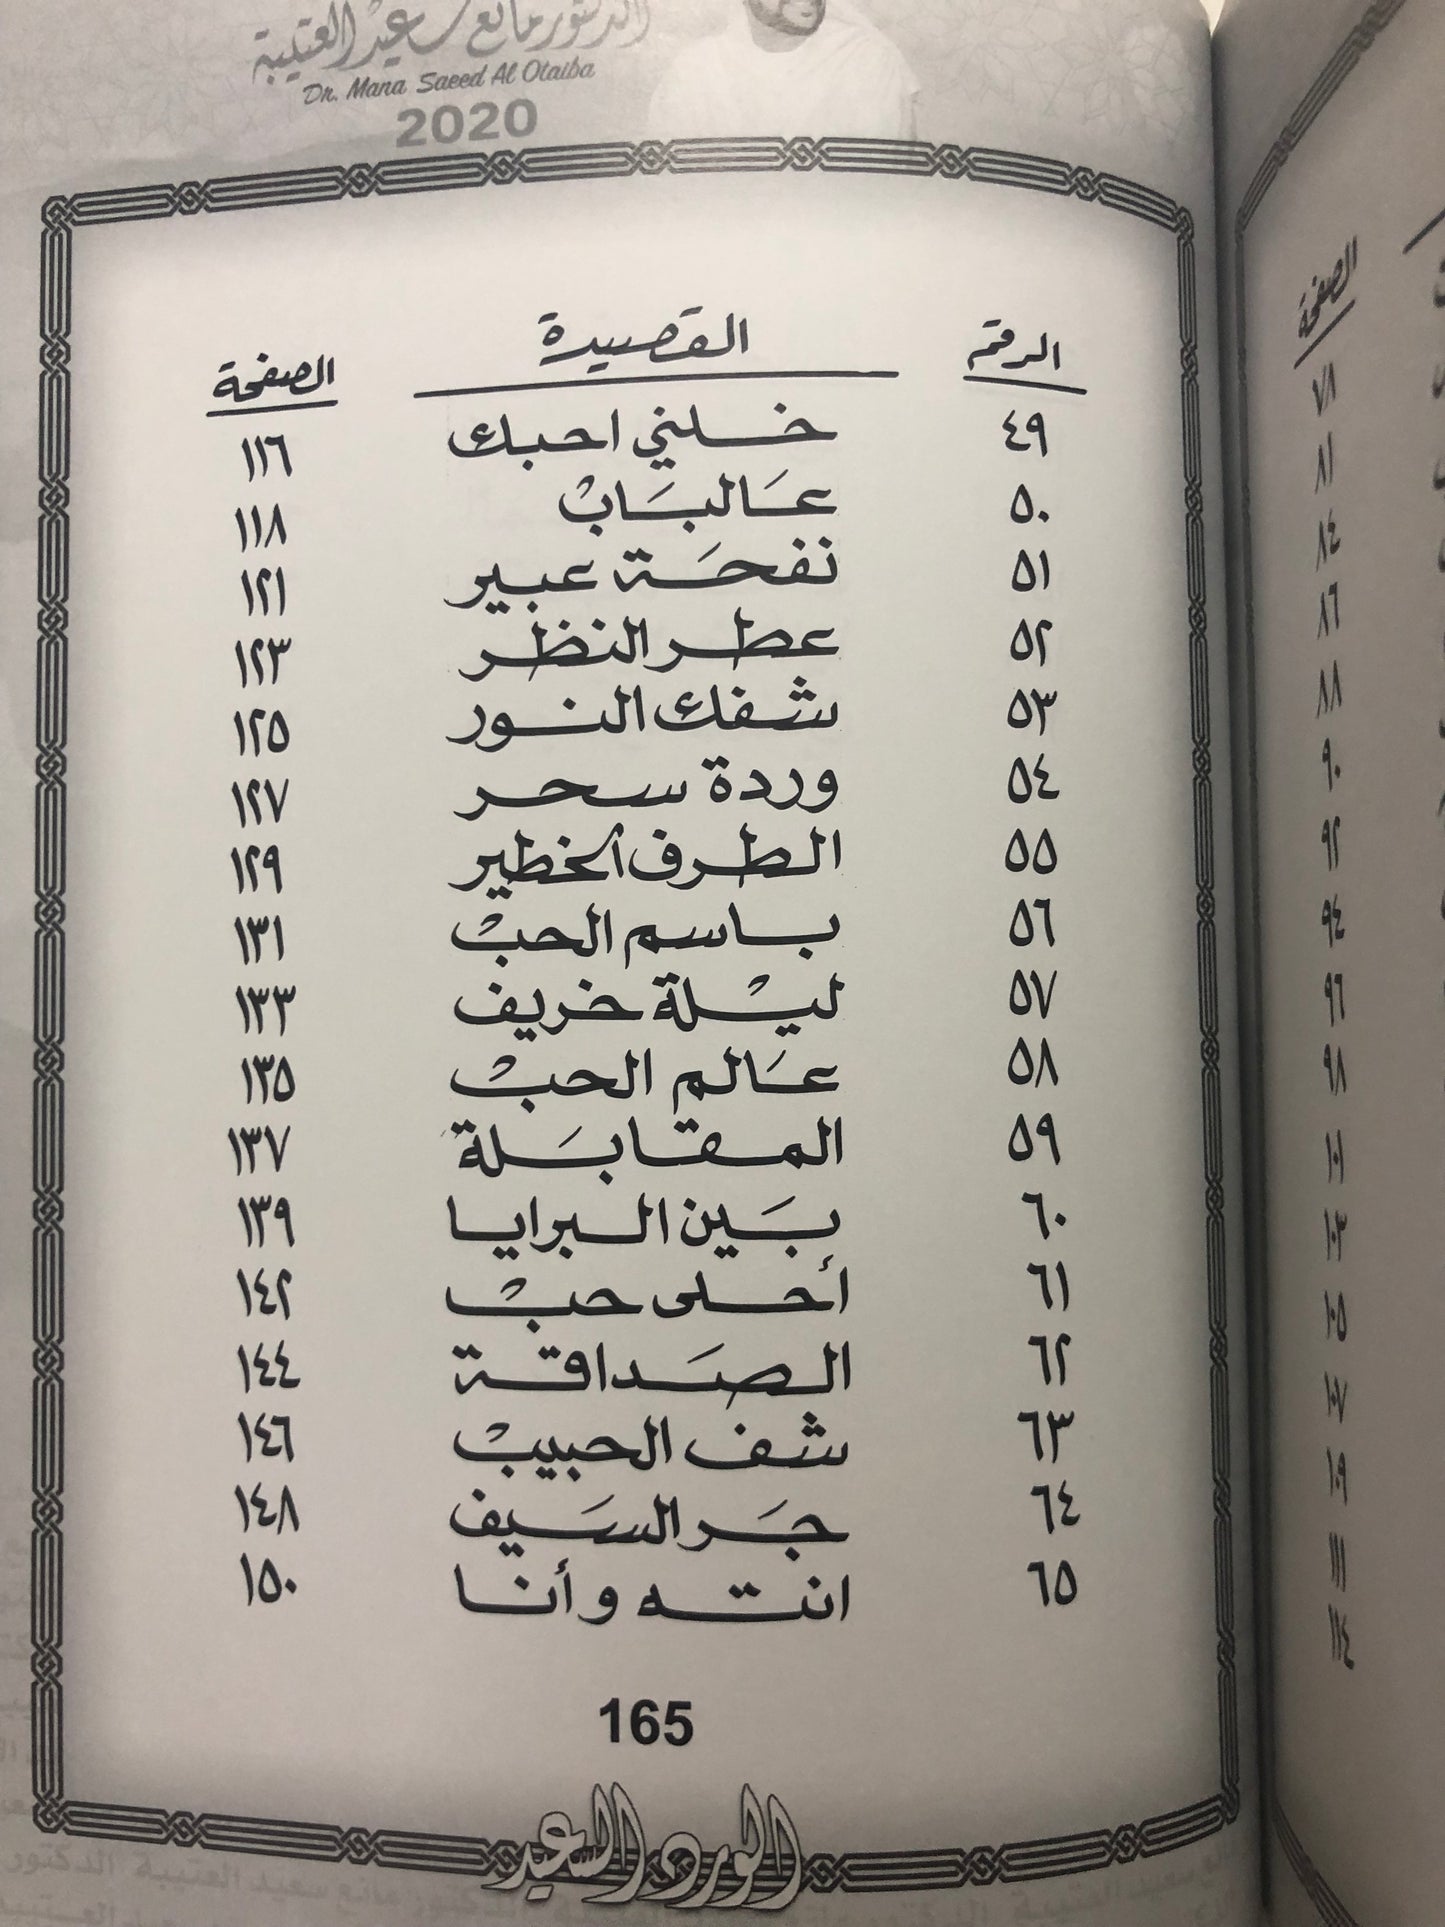 الدكتور مانع سعيد العتيبة
Dr. Mana Saeed Al Otaiba
2020
الرقم القصيدة الصفحة
٤٩ خلني احبك ١١٦
٥٠ عَالبَابْ ١١٨
٥١ نفحَة عبير ١٢١
٥٢ عطر النظر ١٢٣
٥٣ شفك النور ١٢٥
٥٤ وردة سحر ١٢٧
٥٥ الطرف الخطير ١٢٩
٥٦ باسم الحبْ ١٣١
٥٧ ليْلة خريف ١٣٣
٥٨ عَالم الحبْ ١٣٥
٥٩ المقابَلة ١٣٧
٦٠ بَين البرايا ١٣٩
٦١ أحلى حبْ ١٤٢
٦٢ الصَداقة ١٤٤
٦٣ شف الحبيبْ ١٤٦
٦٤ جَر السَيف ١٤٨
٦٥ انته وأنا ١٥٠
165
الورد السعيد
الصفحة
٧٨
٨١
٨٤
٨٦
٨٨
٩٠
٩٢
٩٤
٩٦
٩٨
١٠١
١٠٣
١٠٥
١٠٧
١٠٩
١١١
١١٤